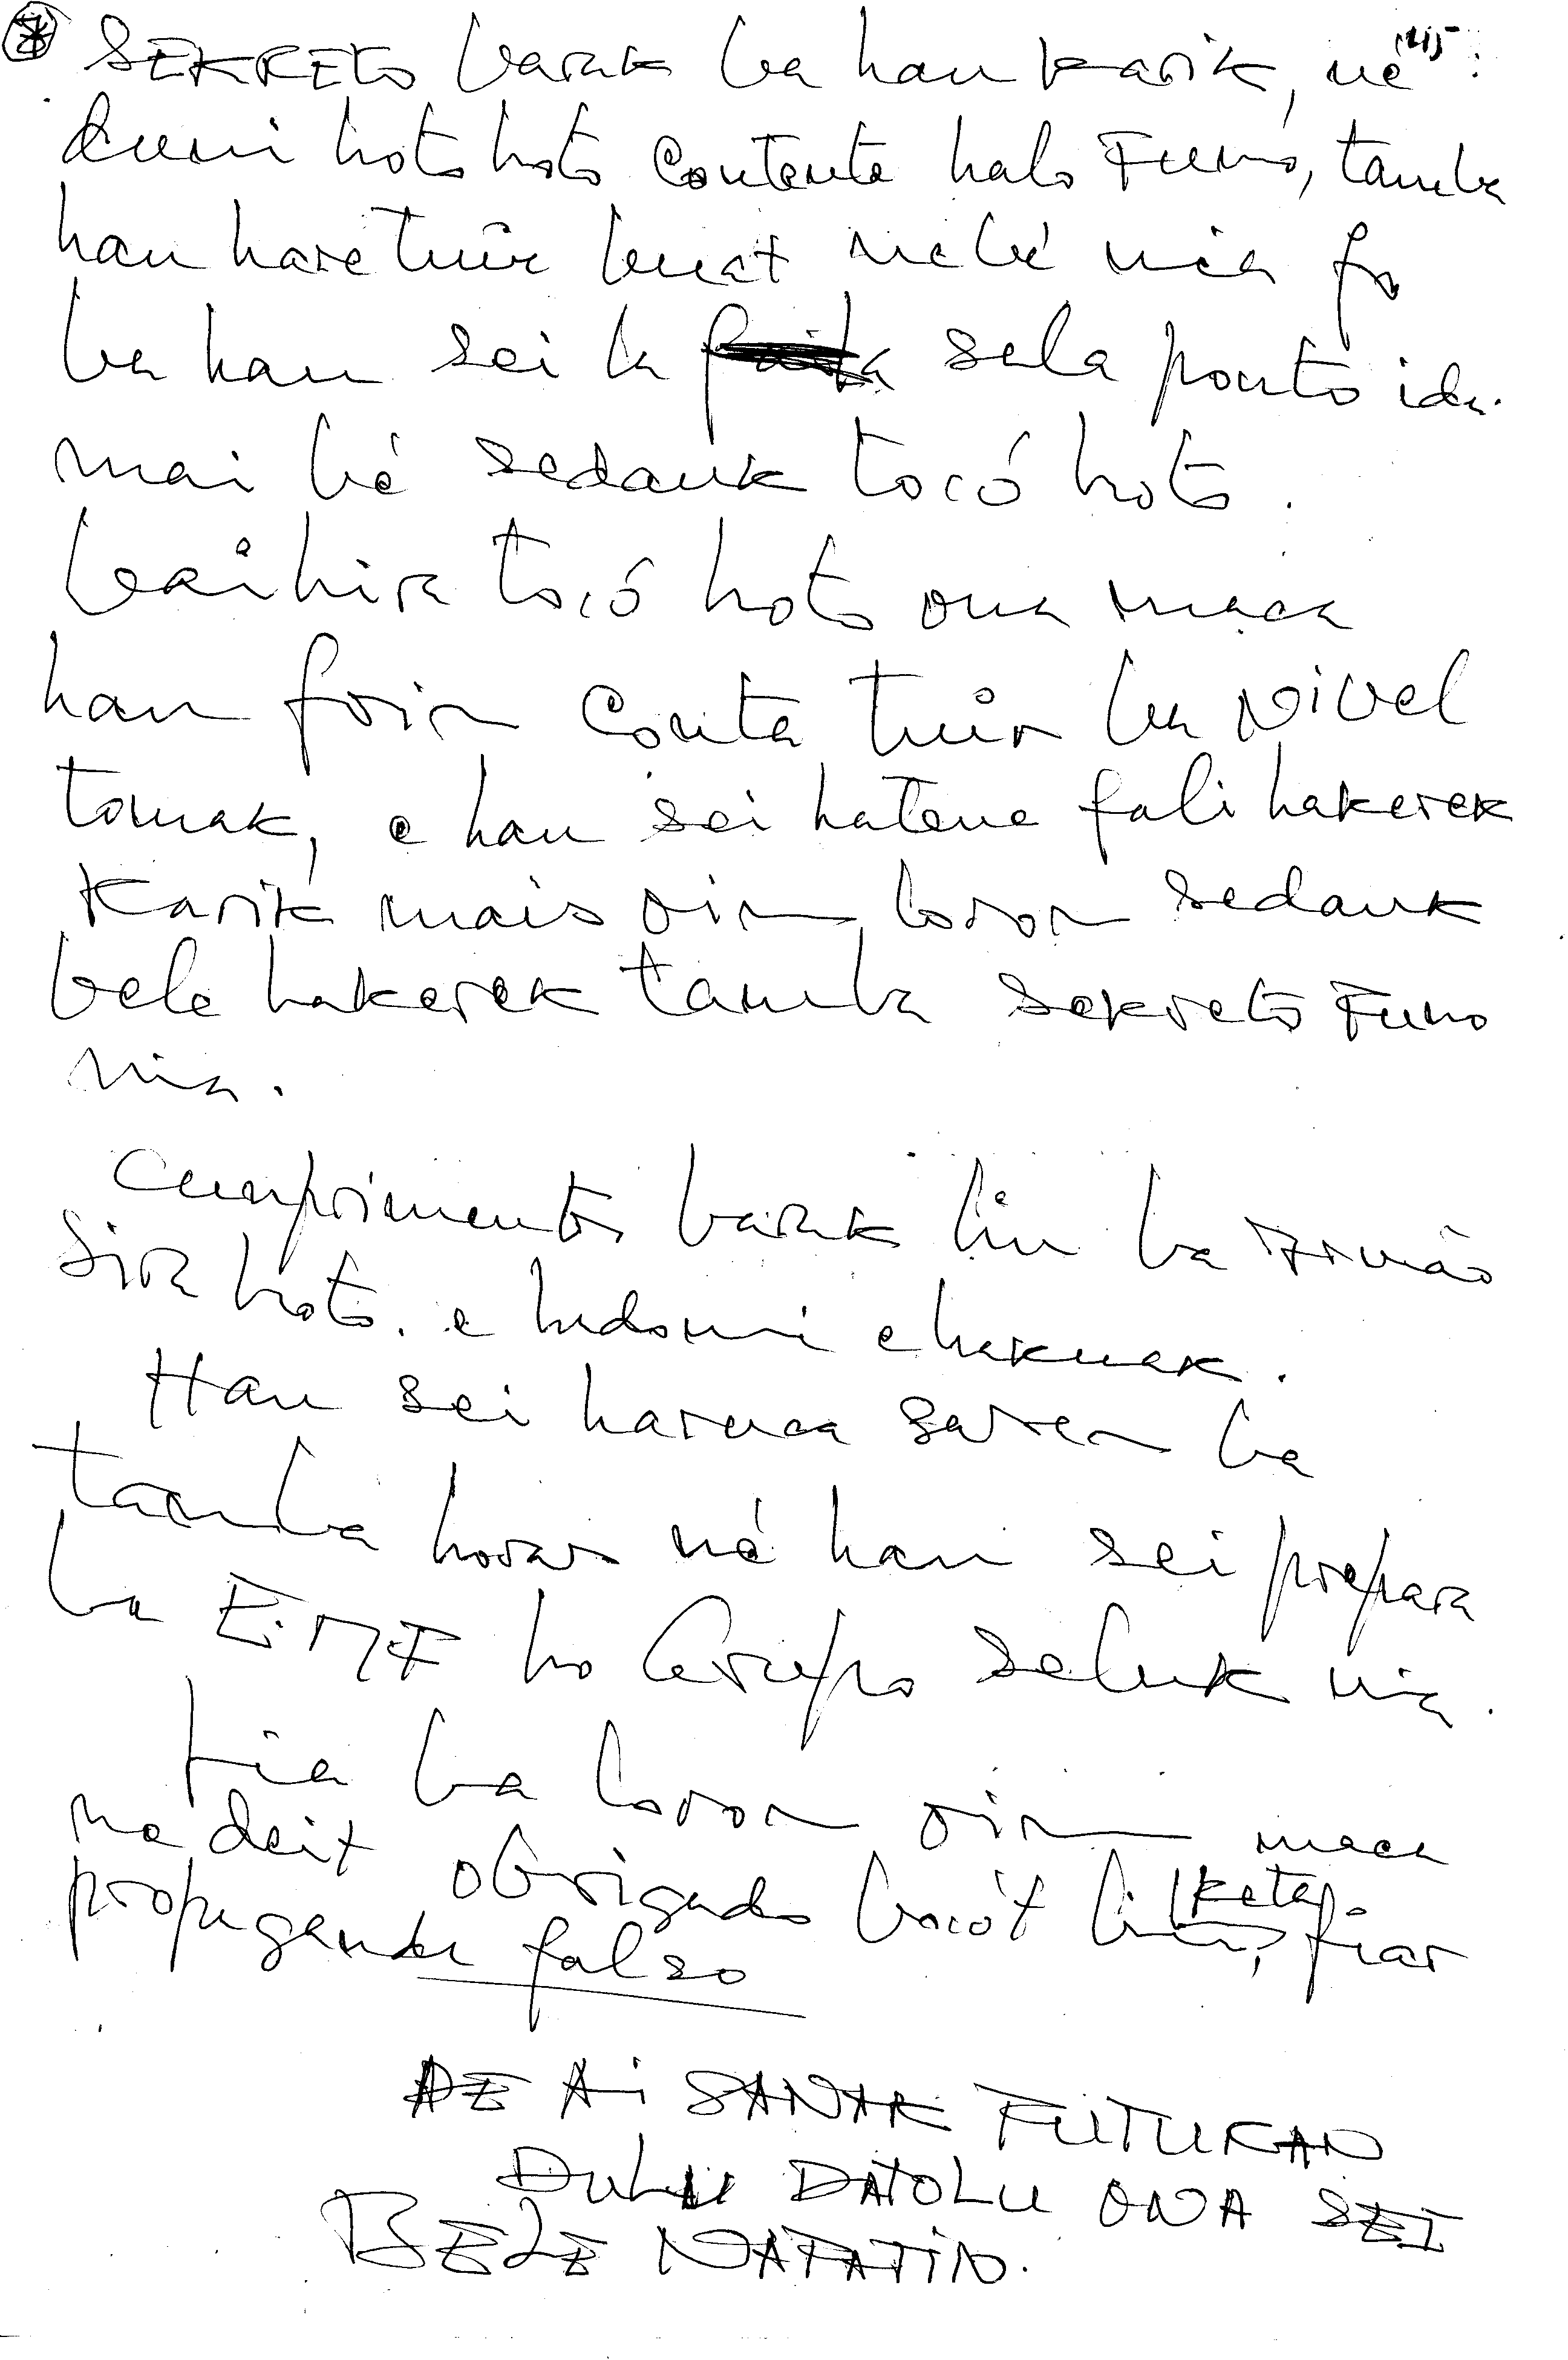 SEKRETO barak ba hau karik, né :
duni hoto hoto contente halo Funo, tamba
hau hare tuir buat nebé nia fo
ba hau sei la sala ponto ida.
mai bé sedauk tocó hoto.
bainhira tocó hoto ona maca
hau foin conta tuir ba Nivel
tomak, e hau sei hatene fali hakerek
Karik mais oin loron sedauk
bele hakerek tamba sekreto Funo
nia.
Cumprimento barak liu ba Irmão
Sira hoto. e hadomi e haknak.
Hau sei haruca saren ba
tamba horas né hau sei prepara
ba E.M.F ho Grupo seluk nia.
Lia ba loron oin maca
ne deit obrigado bocót liu, keta fiar
propaganda falso
DE AI SANAK FUTUKAN
DULU DATOLU ONA SEI
BELE NAFATIN.